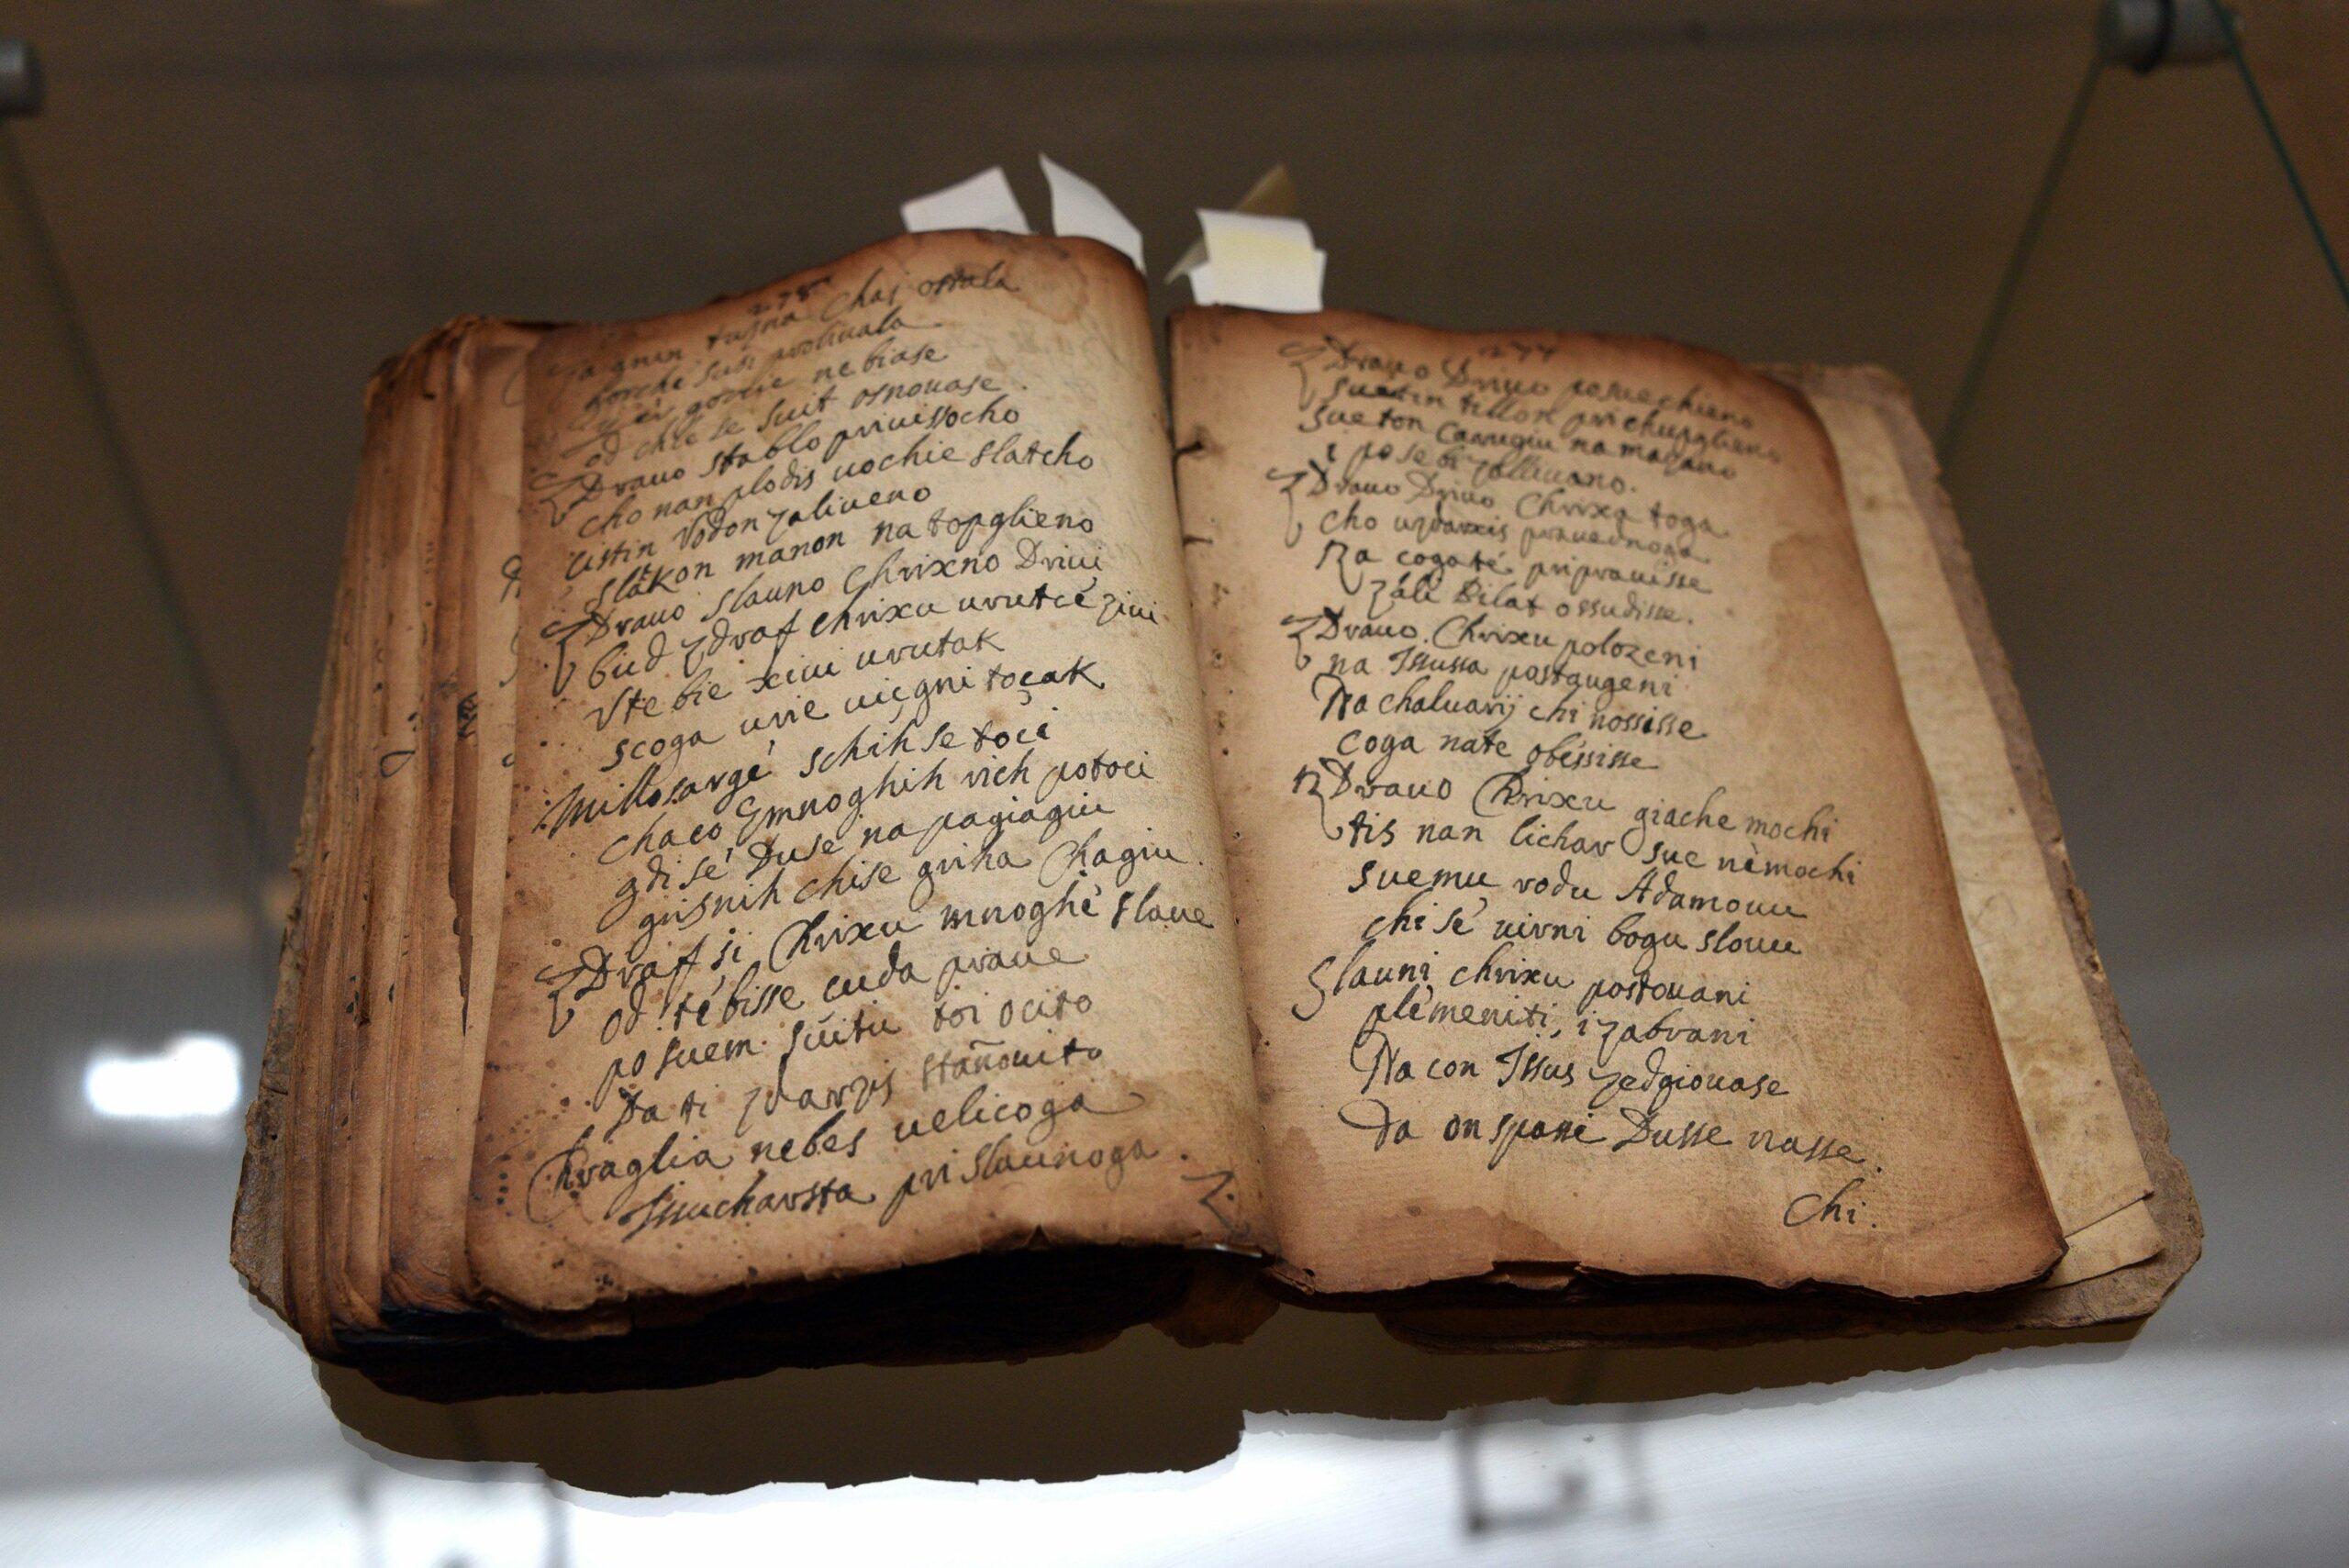 278
tuzna Chaj ostala
gorche suse prolivala
gorcie ne biase
od chle se suit osnouase.
Zdrauo stablo priuissocho
cho nan plodis uochie slatcho
cistin Vodon zaliueno
slakon manon na topglieno
Zdrauo slauno Chrixno Driui
bud zdraf chrixu urutcé ziui
Vtebie xiui urutak
scoga urie uiçgni toçak
Millosargé schih se toci
chaco Zmnoghih rich potoci
gdi sé Duse na pagiagiu
grisnih chise griha Chagiu.
Zdraf si Chrixu mnoghé slaue
od tébisse cuda praue
po suem suitu toi ocito
Da ti zdarzis stañouito
Chraglia nebes uelicoga
Issucharsta pri slaunoga.
279
Zdrauo Driuo posuechieno
suetin tillon prichupglieno
sueton Carugiu na mazano
i po sebi zalliuano.
Zdrauo Driuo Chrixa toga
cho uzdarxis prauednoga
Na cogaté priprauisse
zali Pilat ossudisse.
Zdrauo Chrixu polozeni
na Issussa postaugeni
Na chaluarij chi nossisse
coga nate obéssisse
Zdrauo Chrixu giache mochi
tis nan lichar sue némochi
suemu rodu Adamouu
chi sé uirni bogu slouu
Slauni chrixu postouani
pléméniti, i zabrani
Na con Issus zedgiouase
Da on spasi Dusse nasse.
Chi.